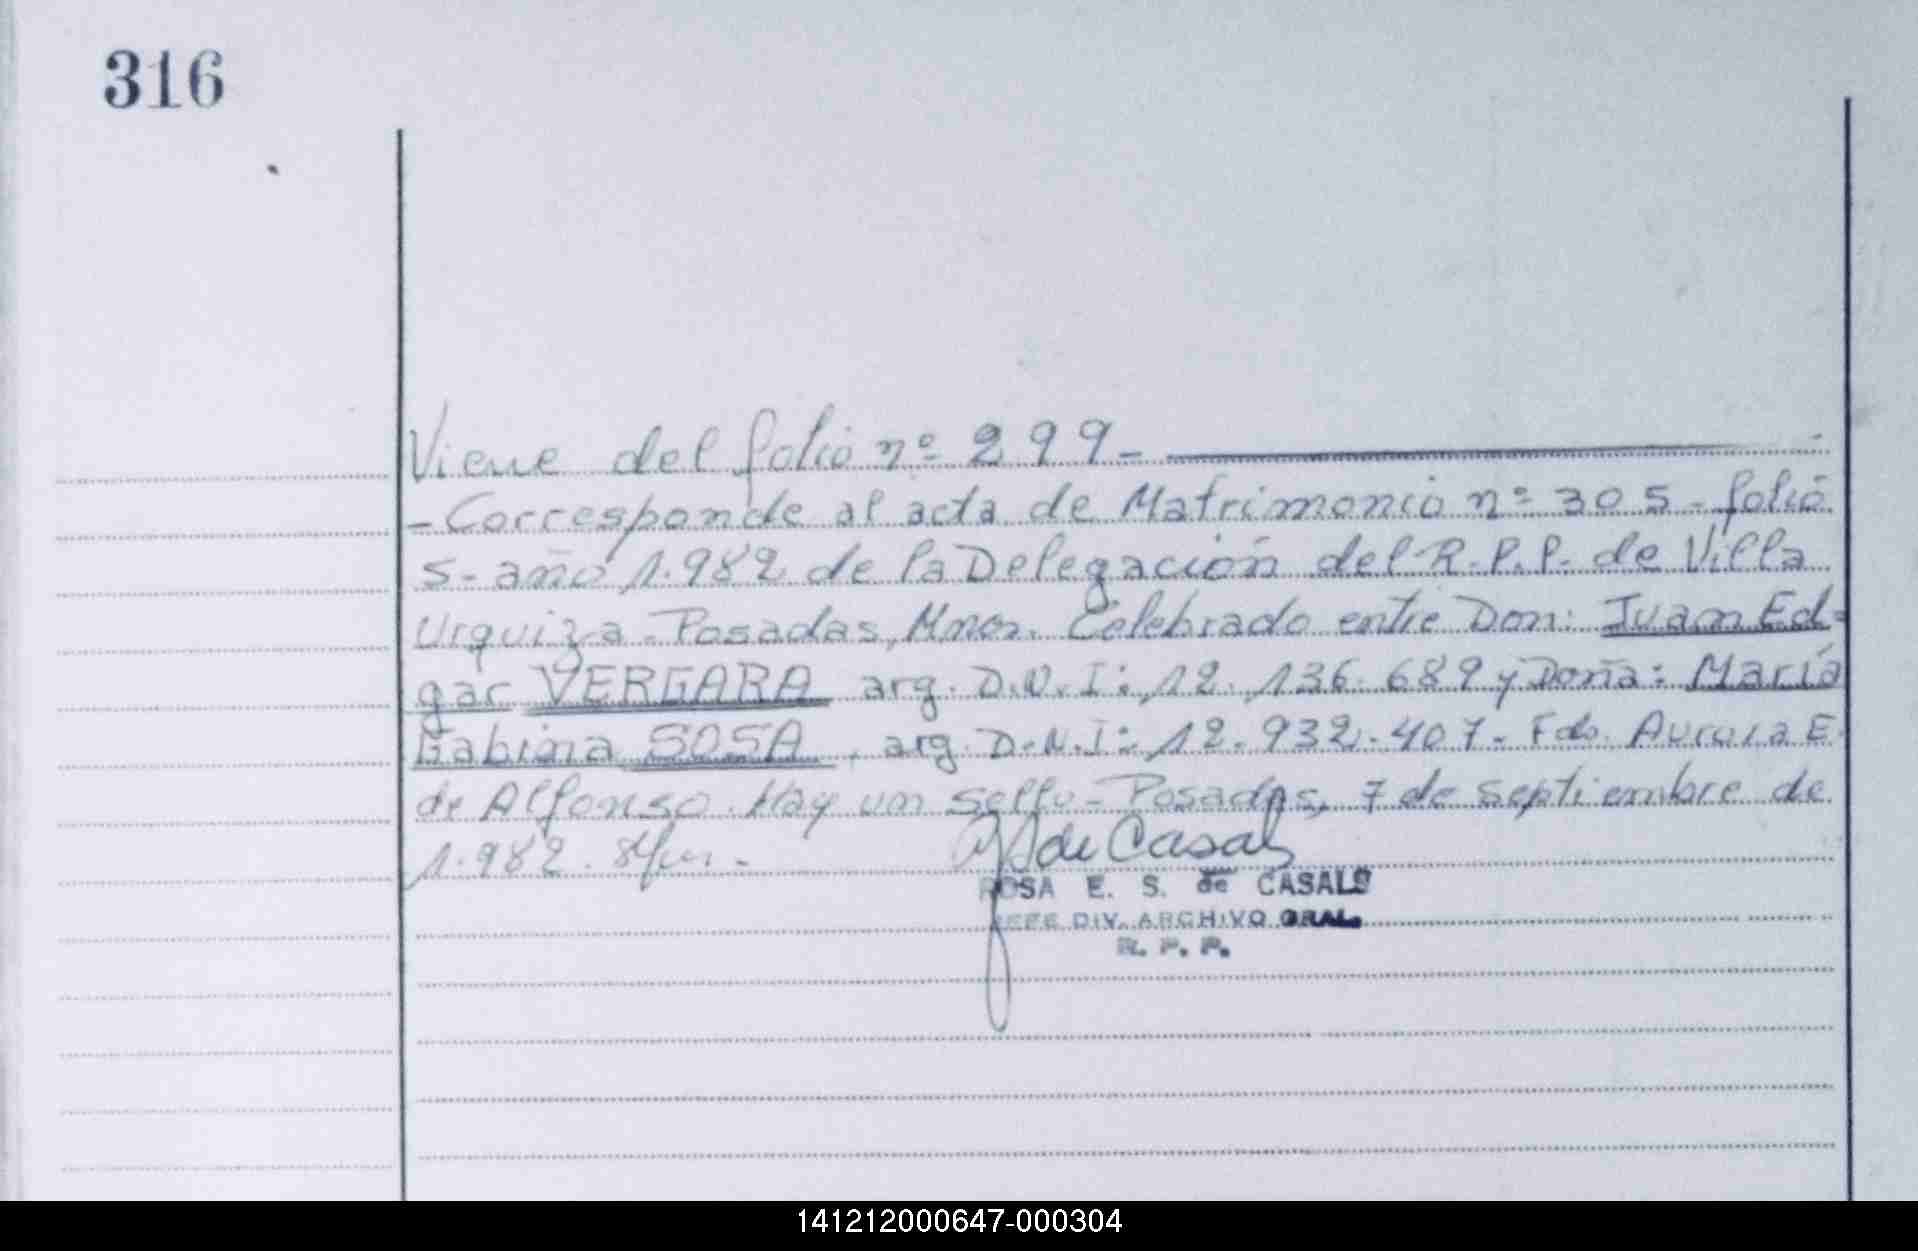 316
Viene del folio nº 299-
- Corresponde al acta de Matrimonio nº 305 - folio
5 - año 1.982 de la Delegación del R.P.P. de Villa
Urquiza - Posadas, Mnes. Celebrado entre Don: Juan Ed=
gar VERGARA arg. D.N.I: 12.136.689 y Doña: María
Gabina SOSA, arg. D.N.I: 12.932.407 - Fdo. Aurora E.
de Alfonso. Hay un sello - Posadas, 7 de septiembre de
1.982.
de Casals
ROSA E. S. de CASALS
JEFE DIV. ARCHIVO GRAL.
R. P. P.
141212000647-000304